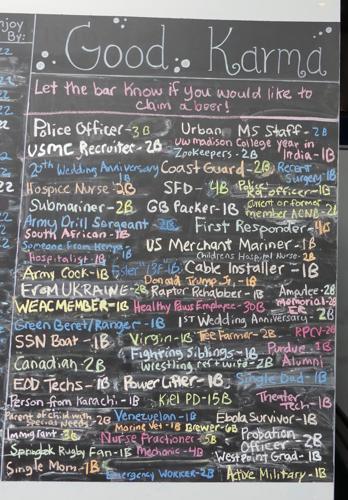 njoy
By:
Good Karma
Let the bar know if you would like to
claim a beer!
Police Officer-3B
Urban MS Staff-2B
USMC Recruiter-2B
UW Madison College year in
India-1B
Zookeepers-2B
20th Wedding Anniversary
Coast Guard-2B
Recent
Surgery-1B
Hospice Nurse-2B
SFD-4B
Submariner-2B
GB Packer-1B
Current or Former
member ACNB-2B
Army Drill Sergeant-2B
First Responder
South African-1B
Someone From Kenya
US Merchant Mariner-1B
Hospitalist-1B
Childrens Hospital Nurse-2B
Army Cook-1B
Cable Installer-1B
Donald Trump Jr.-1B
From UKRAINE-2B
Raptor Rehabber-1B
Amydee-2B
WEAC MEMBER-1B
Healthy Paws Employee-30B
Memorial-2B
ER
Green Beret/Ranger-1B
1st Wedding Anniversary
2B
SSN Boat-1B
Virgin-1B
Tree Farmer-2B
RPCV-2B
Fighting Siblings-1B
Purdue
Alumni
Canadian-2B
Wrestling ref + wife-2B
EDD Techs-1B
Power Lifter-1B
Single Dad-1B
Person from Karachi-1B
Kiel PD-15B
Theater
Tech-1B
Parent of Child with
Special Needs-2B
Venezuelan-1B
Ebola Survivor-1B
Marine Vet-1B
Brewer-6B
Immigrant-3B
Nurse Practioner-5B
Probation
Officer-2B
Springbok Rugby Fan-1B
Mechanic-4B
Westpoint Grad-1B
Single Mom-7B
Emergency Worker-2B
Active Military-1B